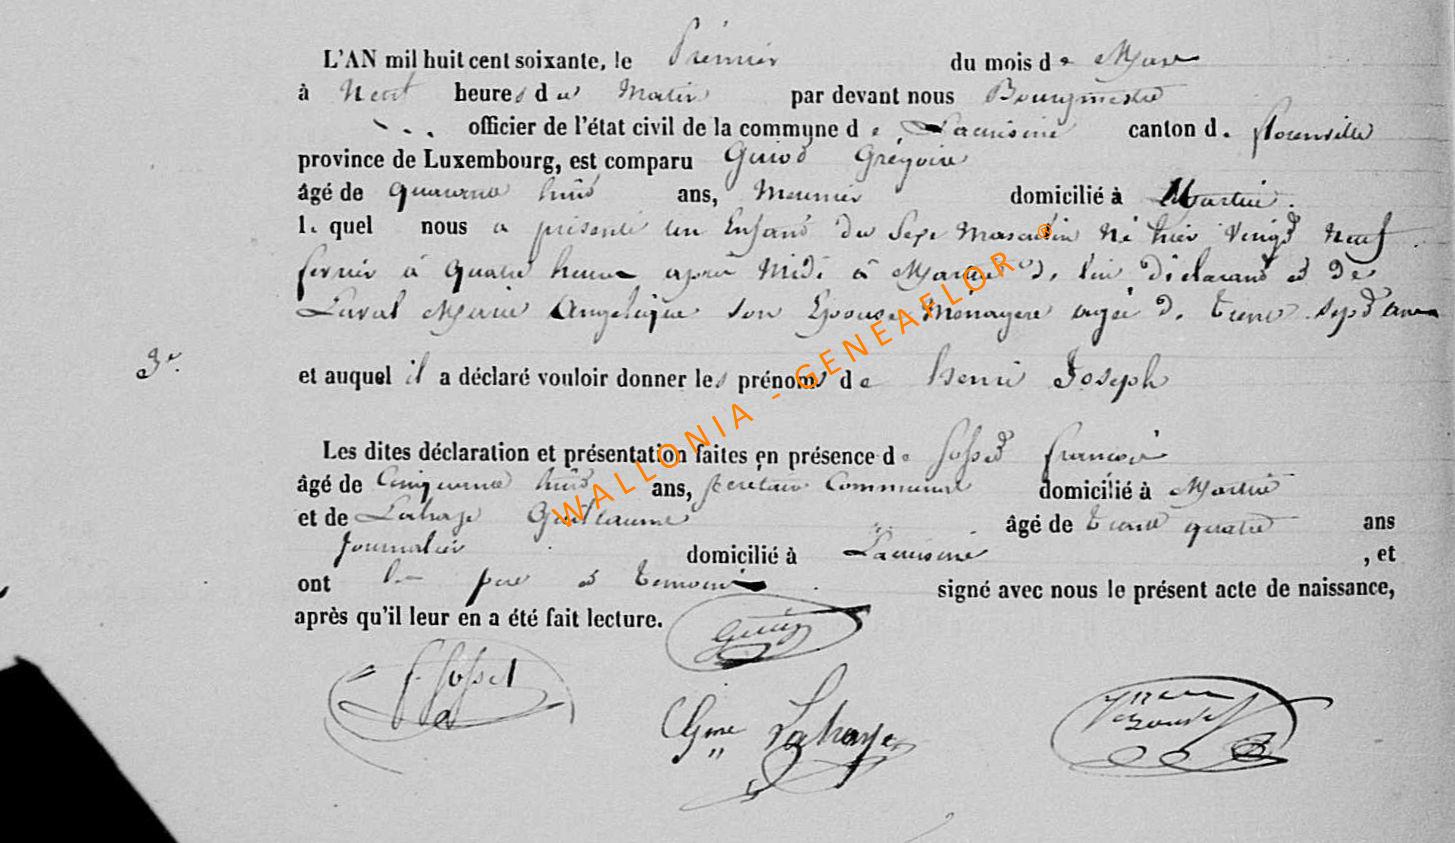 L'AN mil huit cent soixante, le Premier du mois de Mars
à Neuf heures du Matin par devant nous Bourgmestre
officier de l'état civil de la commune de Lacuisine canton d. florenville
province de Luxembourg, est comparu Guiot Grégoire
âgé de quarante huit ans, Meunier domicilié à Martué.
le quel nous a présenté un Enfant du Sexe Masculin Né hier Vingt Neuf
fevrier à quatre heures après Midi à Martué d. lui Déclarant et De
Laval Marie Angelique son Epouse Ménagère agée d. trente sept ans
3e.
et auquel il a déclaré vouloir donner les prénoms de henri Joseph
Les dites déclaration et présentation faites en présence de Josset francois
âgé de Cinquante huit ans, secrétaire Communal domicilié à Martué
et de Lahaye Guillaume âgé de trente quatre ans
Journalier domicilié à Lacuisine, et
ont les père et temoins signé avec nous le présent acte de naissance,
après qu'il leur en a été fait lecture.
Guiot
f. Josset
Gme Lahaye
WALLONIA - GENEAFLOR ®